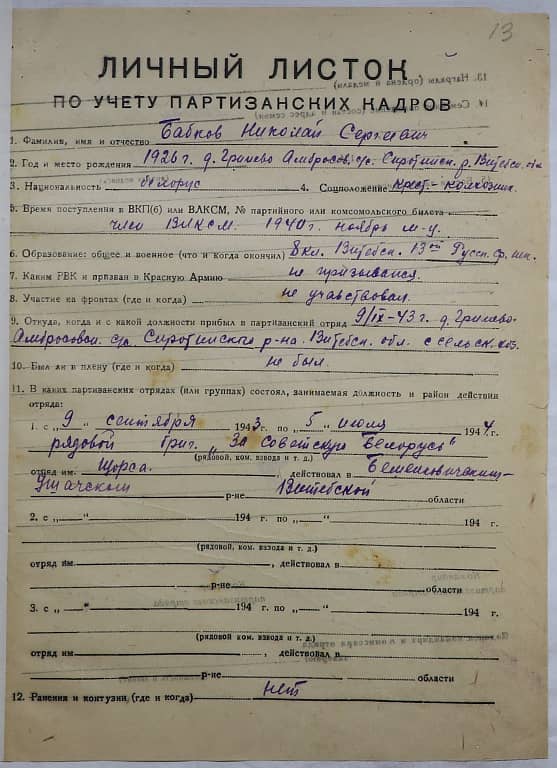 13
ЛИЧНЫЙ ЛИСТОК
ПО УЧЕТУ ПАРТИЗАНСКИХ КАДРОВ
1. Фамилия, имя и отчество Бабков Николай Сергеевич
2. Год и место рождения 1926 г. д. Гринево Амбросов. с/с. Сиротинск. р. Витебск. обл
3. Национальность белорус 4. Соцположение крест-колхозник
5. Время поступления в ВКП(б) или ВЛКСМ, № партийного или комсомольского билета
член ВЛКСМ. 1940 г. ноябрь м-ц.
6. Образование: общее и военное (что и когда окончил) 8 кл. Витебск. 13ой Русск. ср. шк.
7. Каким РВК и призван в Красную Армию не призывался.
8. Участие на фронтах (где и когда) не участвовал.
9. Откуда, когда и с какой должности прибыл в партизанский отряд 9/IX-43 г. д. Гринево
Амбросовск. с/с Сиротинского р-на Витебск. обл. с сельск. хоз.
10. Был ли в плену (где и когда) не был.
11. В каких партизанских отрядах (или группах) состоял, занимаемая должность и район действия
отряда:
1. с „9" сентября 1943 г. по „5" июля 1944 г.
рядовой бриг. "За Советскую Белорусь"
(рядовой, ком. взвода и т. д.)
отряд им. Щорса. действовал в
Ушачском р-не Витебской области
2. с „ " 194 г. по „ " 194 г.
(рядовой, ком. взвода и т. д.)
отряд им. , действовал в
р-не области
3. с „ " 194 г. по „ " 194 г.
(рядовой, ком. взвода и т. д.)
отряд им. , действовал в
р-не области
12. Ранения и контузии (где и когда) нет